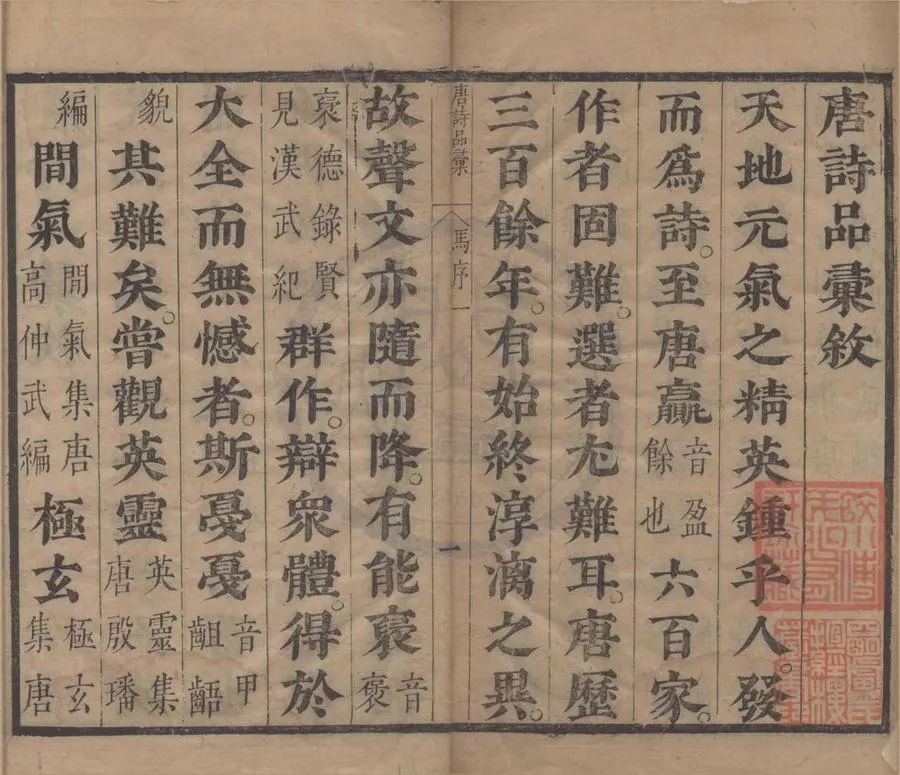 唐詩品彙敘
天地元氣之精英鍾乎人。發
而爲詩。至唐贏音盈餘也六百家。
作者固難。選者尤難耳。唐歷
三百餘年。有始終淳漓之異。
唐詩品彙 馬序一 一
故聲文亦隨而降。有能裒音褒
裒德錄賢見漢武紀群作。辯眾體。得於
大全而無憾者。斯戞戞音甲齟齬
貌其難矣。嘗觀英靈英靈集唐殷璠
編間氣間氣集唐高仲武編極玄極玄集唐